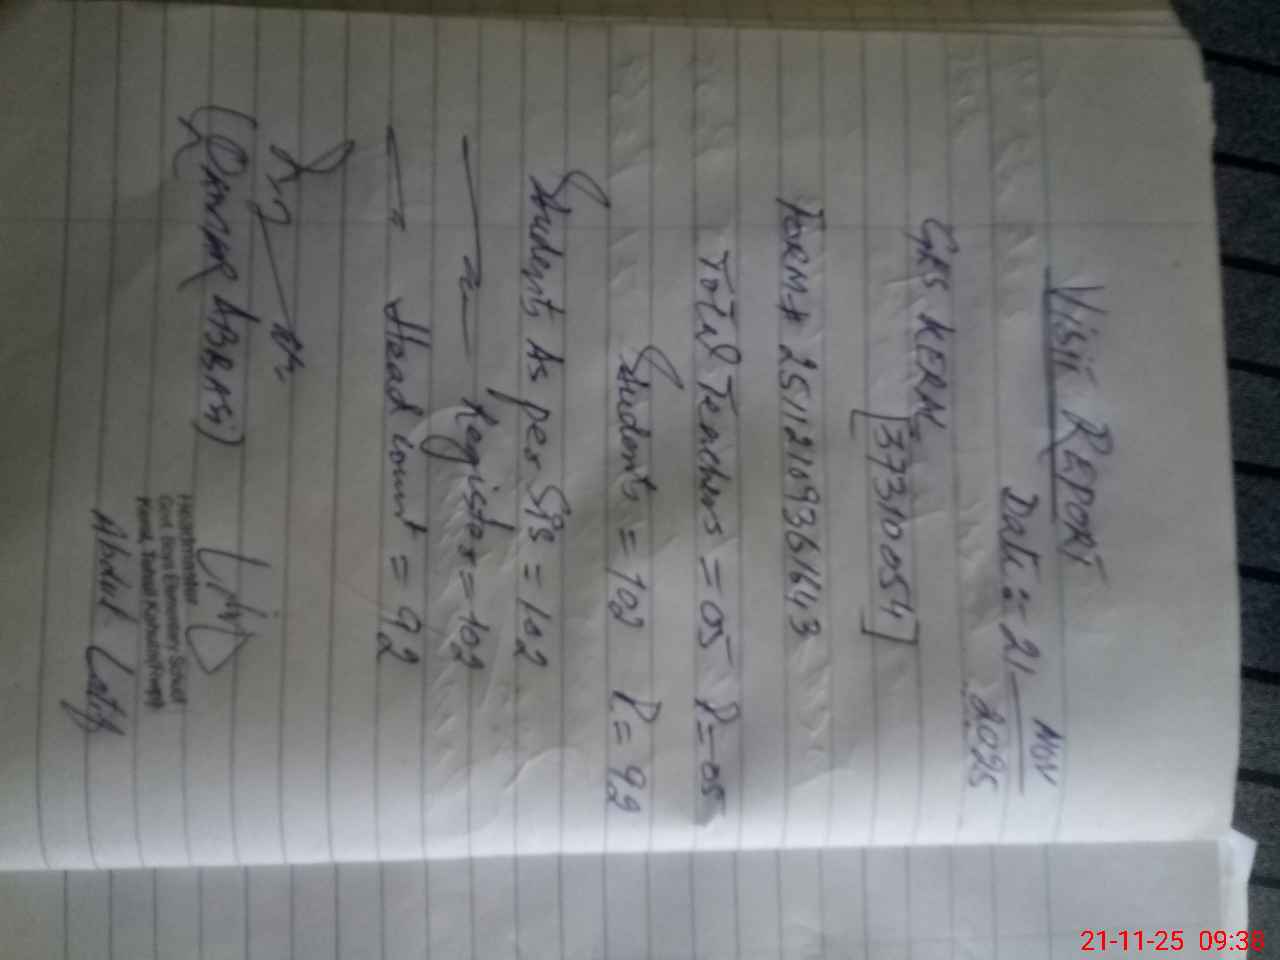 VISIT REPORT
Date:- 21 NOV 2025
GES KERN
[37310054]
FORM# 25112109361643
Total Teachers = 05 P=05
Students = 102 P=92
Students As per SIS = 102
—〃— Register = 102
—〃— Head count = 92
(QAMAR ABBASI)
Headmaster
Govt Boys Elementary School
Abdul Latif
21-11-25 09:38